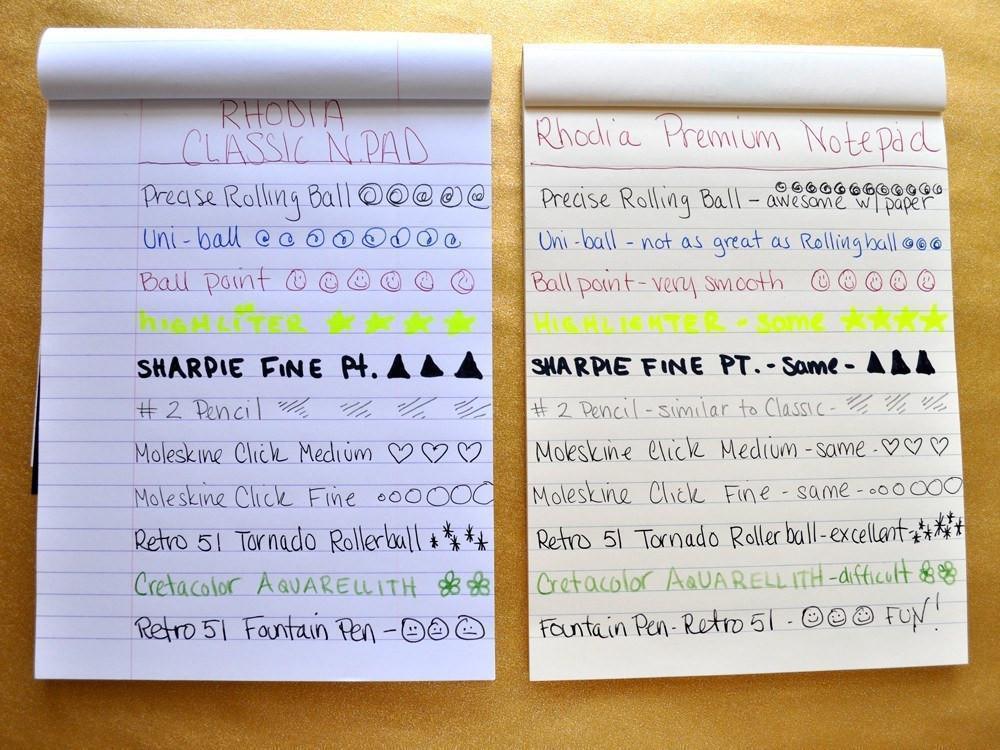 RHODIA
CLASSIC N.PAD
Precise Rolling Ball
Uni-ball
Ball point
HIGHLITER
SHARPIE FINE Pt.
# 2 Pencil
Moleskine Click Medium
Moleskine Click Fine
Retro 51 Tornado Rollerball
Cretacolor AQUARELLITH
Retro 51 Fountain Pen -
Rhodia Premium Notepad
Precise Rolling Ball - awesome w/ paper
Uni-ball - not as great as Rollingball
Ball point - very smooth
HIGHLIGHTER - same
SHARPIE FINE PT. - Same -
# 2 Pencil - similar to Classic -
Moleskine Click Medium - same -
Moleskine Click Fine - same -
Retro 51 Tornado Rollerball - excellent -
Cretacolor AQUARELLITH - difficult
Fountain Pen - Retro 51 - FUN!